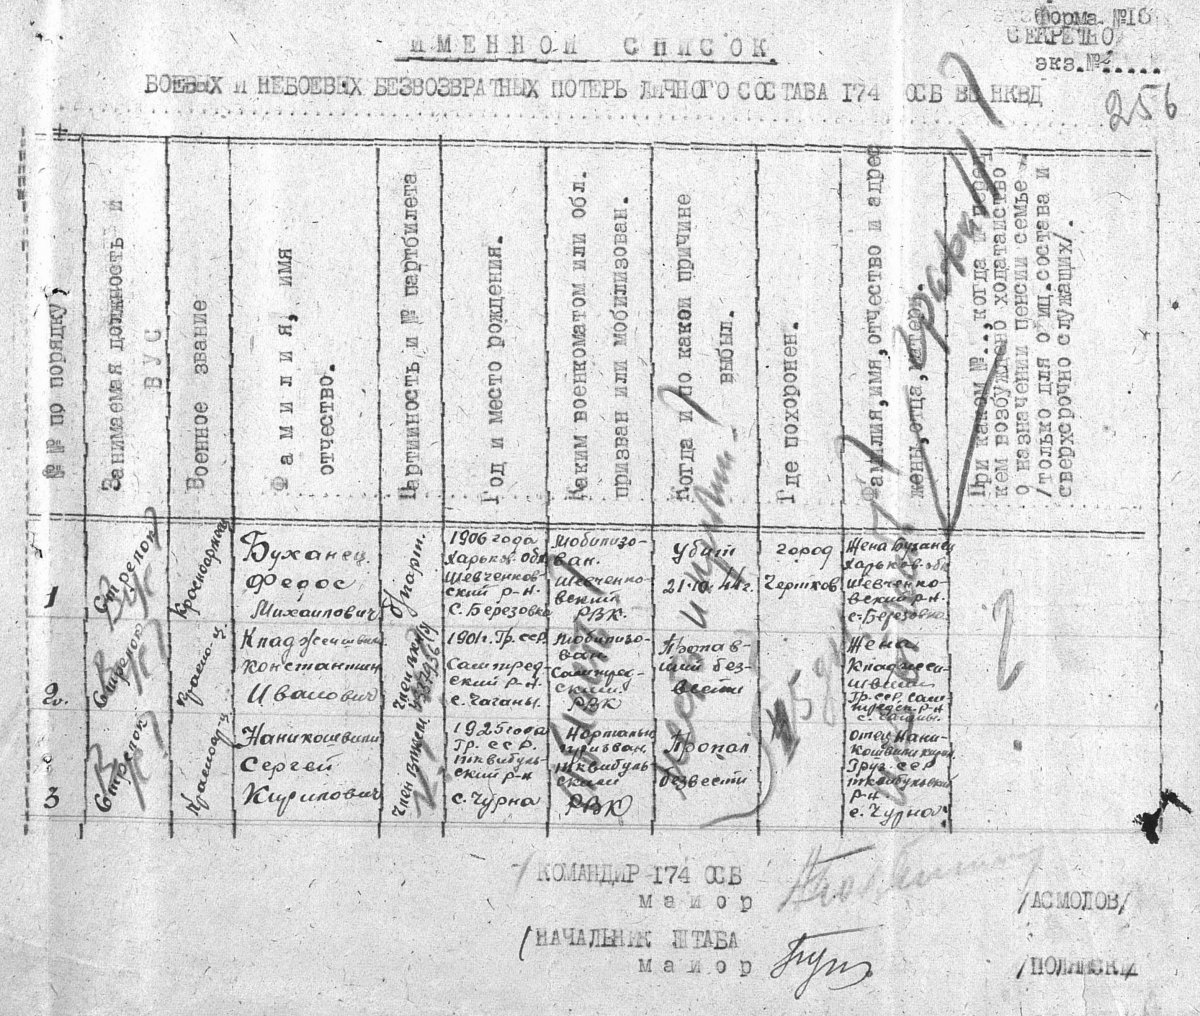 Форма №16
СЕКРЕТНО
экз.№.....
ИМЕННОЙ СПИСОК
БОЕВЫХ И НЕБОЕВЫХ БЕЗВОЗВРАТНЫХ ПОТЕРЬ ЛИЧНОГО СОСТАВА 174 ОСБ ВВ НКВД
256
№№ по порядку
Занимаемая должность и
ВУС
Военное звание
Фамилия, имя
отчество.
Партийность и № партбилета
Год и место рождения.
Каким военкоматом или обл.
призван или мобилизован.
Когда и по какой причине
выбыл.
Где похоронен.
Фамилия,имя,отчество и адрес
жены,отца,матери.
При каком №..,когда и перед
кем возбуждено ходатайство
о назначении пенсии семье
/только для офиц.состава и
сверхсрочно служащих/.
1
Стрелок
Красноармеец
Буханец
Федос
Михаилович
б/парт.
1906 года
Харьков. обл.
Шевченков-
ский р-н.
с. Березовка
Мобилизо-
ван.
Шевченко-
вский
РВК.
Убит
21.10.44г.
город
Чертков
Жена Буханец
Харьков. обл
Шевченко-
вский р-н.
с-Березовка
2.
Стрелок
Красно-ц
Кладжешвили
Константин
Иванович
Член ВКП/б
1901г. Гр. ССР.
Самтред-
ский р-н.
с. Чаганы.
Мобилизо-
ван
Самтред-
ским
РВК
Пропав-
ший без-
вести
Жена
Кладже-
швили
Гр. ССР Сам-
тредск р-н
с. Чаганы.
3
Стрелок
Красноарм
Наникошвили
Сергей
Кирилович
Член ВЛКСМ
1925 года
Гр. ССР.
Тквибуль-
ский р-н
с. Чурна
Нормально
призван.
Тквибуль-
ским
РВК
Пропал
безвести
отец Нани-
кошвили Кирил.
Груз. ССР
Тквибульский
р-н
с. Чурна.
КОМАНДИР 174 ОСБ
майор
/АСМОЛОВ/
НАЧАЛЬНИК ШТАБА
майор
/ПОЛЯНСКИЙ